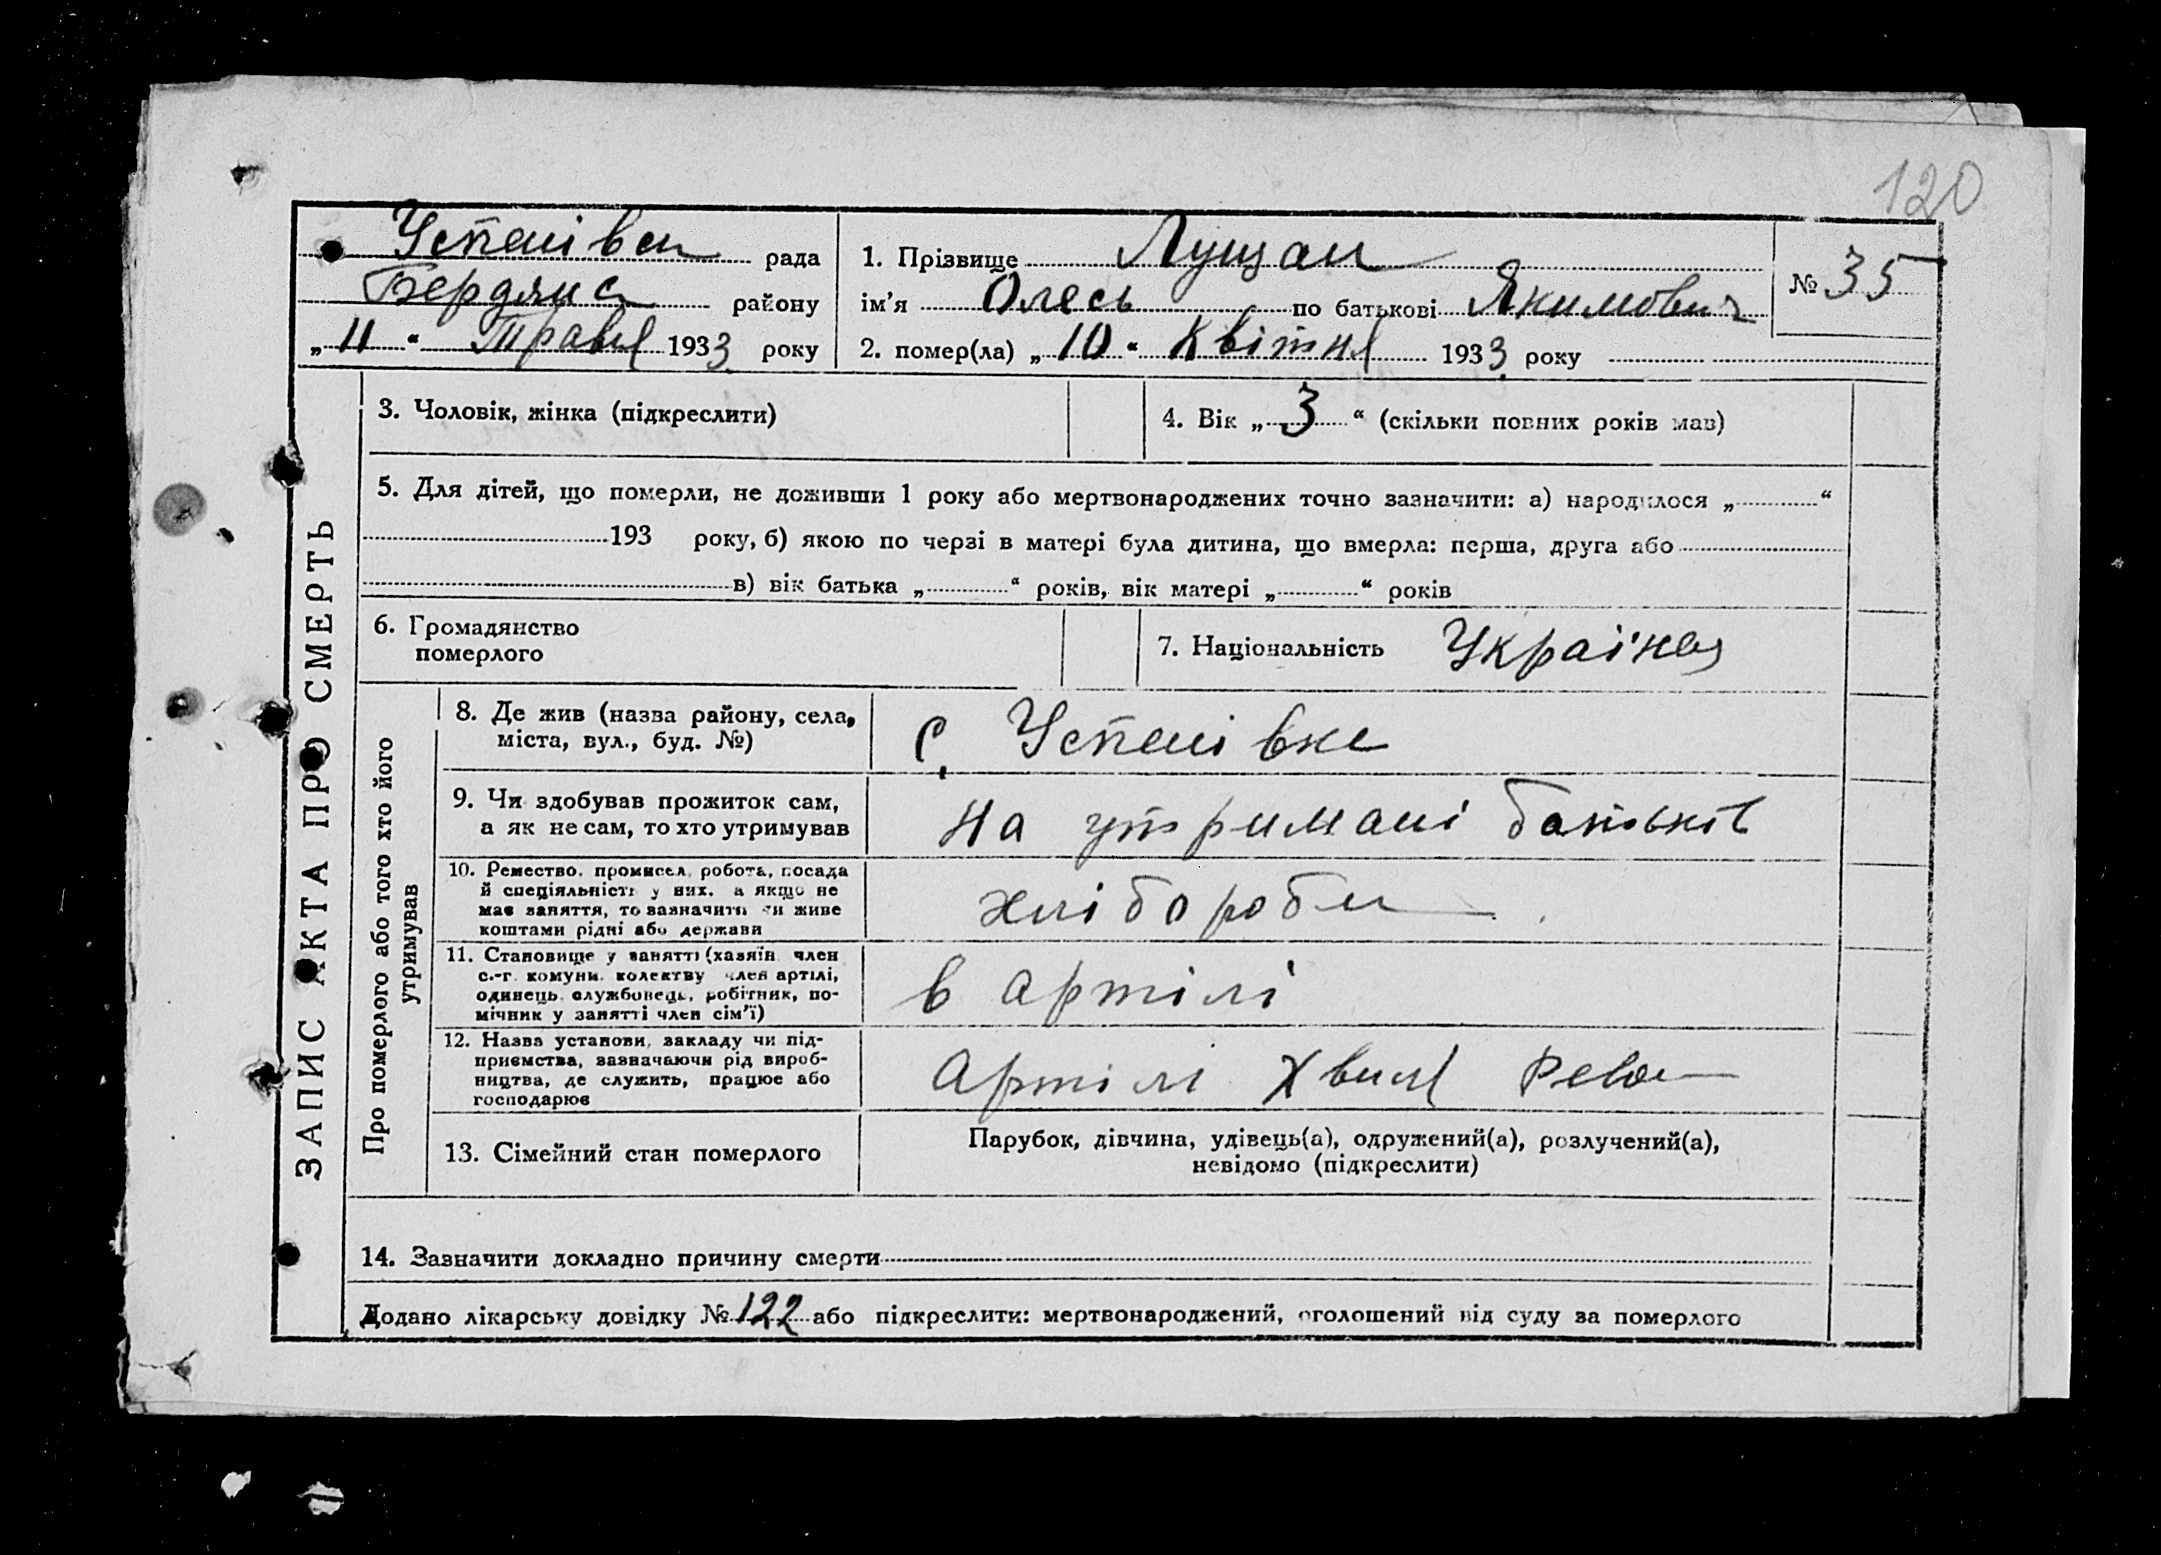 120
Успенівськ рада
Бердянс району
„ 11 “ Травня 1933 року
1. Прізвище Лущан
ім’я Олесь по батькові Якимович
№ 35
2. помер(ла) „ 10 “ Квітня 1933 року
3. Чоловік, жінка (підкреслити)
4. Вік „ 3 “ (скільки повних років мав)
5. Для дітей, що померли, не доживши 1 року або мертвонароджених точно зазначити: а) народилося „ “
193 року, б) якою по черзі в матері була дитина, що вмерла: перша, друга або
в) вік батька „ “ років, вік матері „ “ років
6. Громадянство
померлого
7. Національність Україней
ЗАПИС АКТА ПРО СМЕРТЬ
Про померлого або того хто його
утримував
8. Де жив (назва району, села,
міста, вул., буд. №)
с. Успенівка
9. Чи здобував прожиток сам,
а як не сам, то хто утримував
на утримані батьків
10. Ремество, промисел, робота, посада
й спеціяльність у них, а якщо не
має заняття, то зазначити чи живе
коштами рідні або держави
хлібороби
11. Становище у занятті (хазяїн член
с.-г. комуни, колектву член артілі,
одинець, службовець, робітник, по-
мічник у занятті член сім’ї)
в артілі
12. Назва установи, закладу чи під-
приємства, зазначаючи рід вироб-
ництва, де служить, працює або
господарює
Артілі Хвиля Рево
13. Сімейний стан померлого
Парубок, дівчина, удівець(а), одружений(а), розлучений(а),
невідомо (підкреслити)
14. Зазначити докладно причину смерти
Додано лікарську довідку № 122 або підкреслити: мертвонароджений, оголошений від суду за померлого